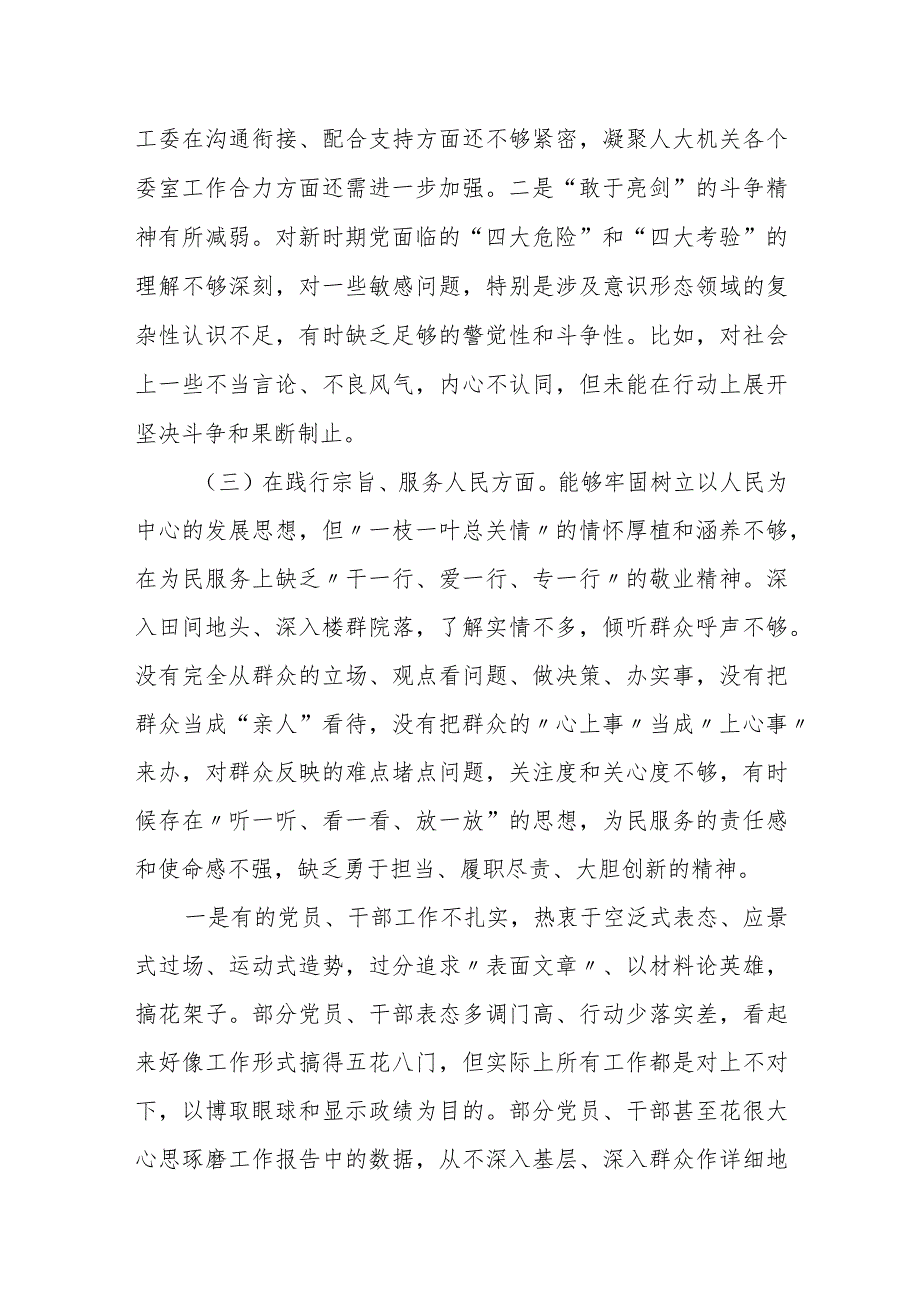 工委在沟通衔接、配合支持方面还不够紧密，凝聚人大机关各个
委室工作合力方面还需进一步加强。二是“敢于亮剑”的斗争精
神有所减弱。对新时期党面临的“四大危险”和“四大考验”的
理解不够深刻，对一些敏感问题，特别是涉及意识形态领域的复
杂性认识不足，有时缺乏足够的警觉性和斗争性。比如，对社会
上一些不当言论、不良风气，内心不认同，但未能在行动上展开
坚决斗争和果断制止。
（三）在践行宗旨、服务人民方面。能够牢固树立以人民为
中心的发展思想，但〃一枝一叶总关情〃的情怀厚植和涵养不够，
在为民服务上缺乏〃干一行、爱一行、专一行〃的敬业精神。深
入田间地头、深入楼群院落，了解实情不多，倾听群众呼声不够。
没有完全从群众的立场、观点看问题、做决策、办实事，没有把
群众当成“亲人”看待，没有把群众的〃心上事〃当成〃上心事〃
来办，对群众反映的难点堵点问题，关注度和关心度不够，有时
候存在〃听一听、看一看、放一放”的思想，为民服务的责任感
和使命感不强，缺乏勇于担当、履职尽责、大胆创新的精神。
一是有的党员、干部工作不扎实，热衷于空泛式表态、应景
式过场、运动式造势，过分追求〃表面文章〃、以材料论英雄，
搞花架子。部分党员、干部表态多调门高、行动少落实差，看起
来好像工作形式搞得五花八门，但实际上所有工作都是对上不对
下，以博取眼球和显示政绩为目的。部分党员、干部甚至花很大
心思琢磨工作报告中的数据，从不深入基层、深入群众作详细地